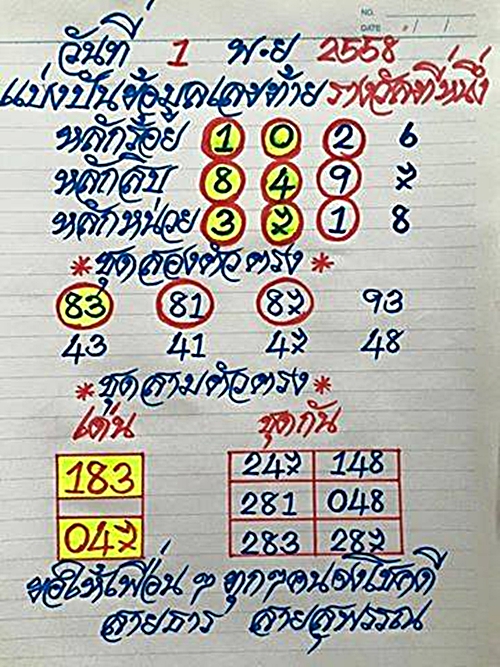 NO.
DATE / /
วันที่ 1 พ.ย 2558
แบ่งปันข้อมูลเลขท้ายรางวัลที่หนึ่ง
หลักร้อย 1 0 2 6
หลักสิบ 8 4 9 7
หลักหน่วย 3 7 1 8
*ชุดสองตัวตรง*
83 81 87 93
43 41 47 48
*ชุดสามตัวตรง*
เด่น ชุดกัน
183 247 148
281 048
047 283 287
ขอให้เพื่อนๆ ทุกๆคนจงโชคดี
สายธาร สายสุพรรณ